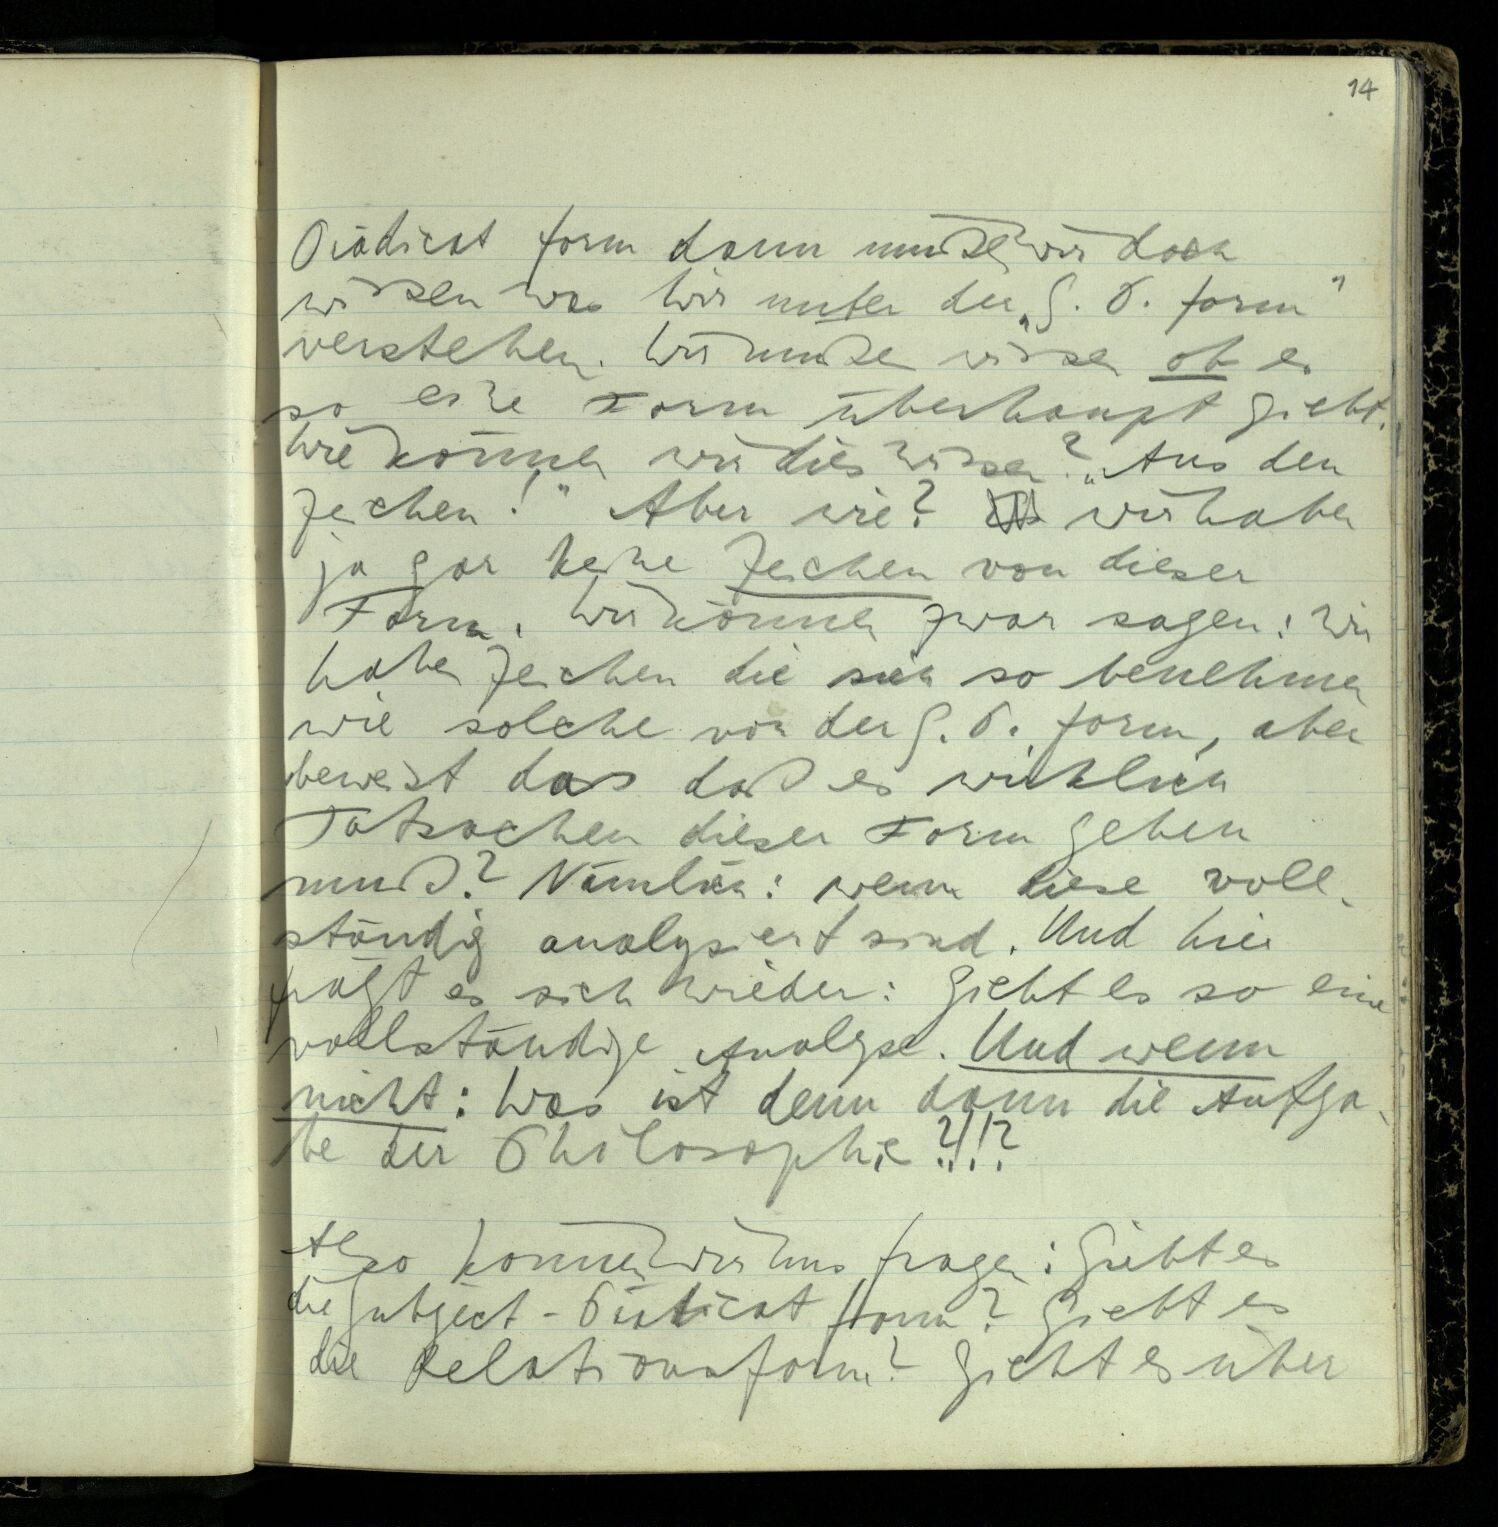 14
Prädicat form dann müßen wir doch
wissen was wir unter der „S. P. form"
verstehen. Wir müßen wissen ob es
so eine Form überhaupt giebt.
Wie können wir dies wissen? „Aus den
Zeichen!" Aber wie? wir haben
ja gar keine Zeichen von dieser
Form. Wir können zwar sagen: Wir
haben Zeichen die sich so benehmen
wie solche von der S. P. form, aber
beweist das daß es wirklich
Tatsachen dieser Form geben
muß? Nämlich: wenn diese voll-
ständig analysiert sind. Und hier
frägt es sich wieder: giebt es so eine
vollständige Analyse. Und wenn
nicht: Was ist denn dann die Aufga-
be der Philosophie?!!?
Also können wir uns fragen: Giebt es
die Subject-Prädicat form? Giebt es
die Relationsform? Giebt es über